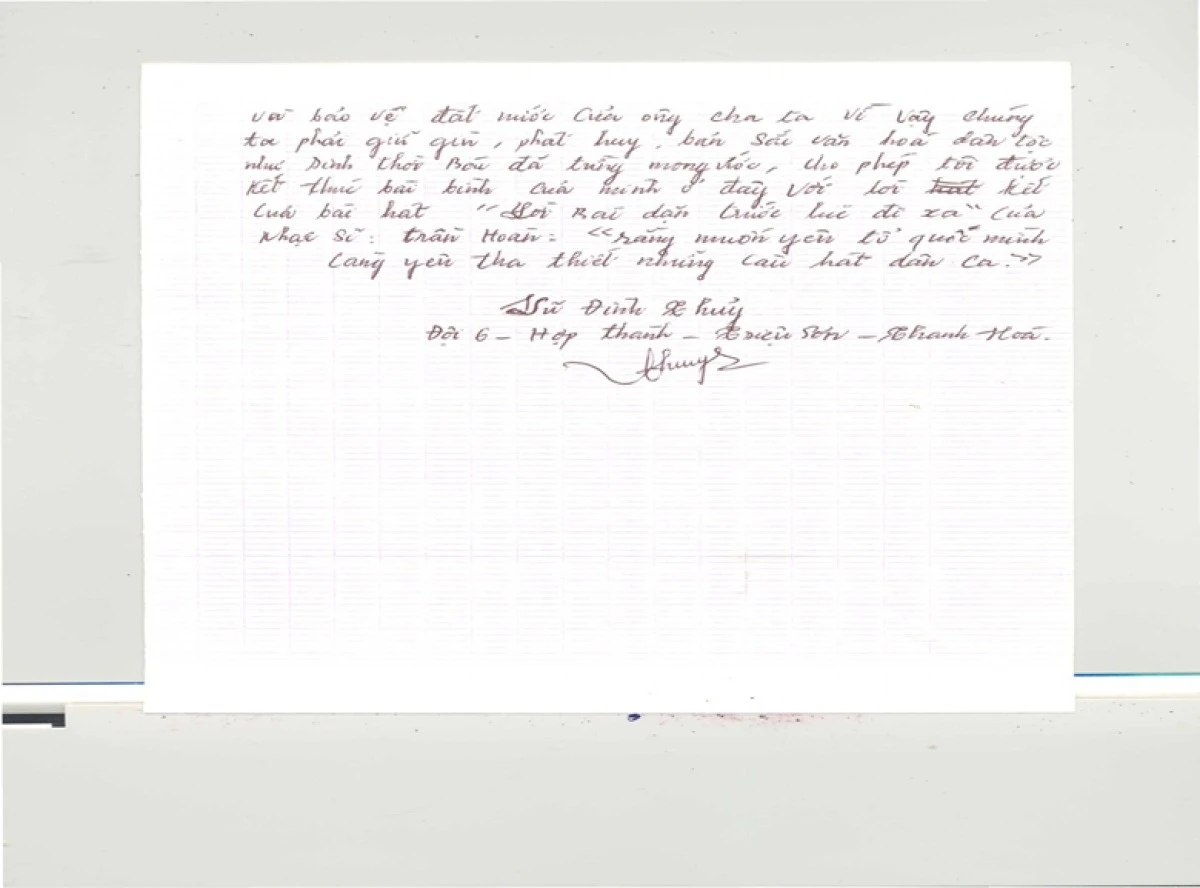 và bảo vệ đất nước của ông cha ta vì vậy chúng
ta phải giữ gìn, phát huy, bản sắc văn hoá dân tộc
như Đinh thời Báu đã từng mong ước, cho phép tôi được
kết thúc bài bình của mình ở đây với lời hát kết
của bài hát "Lời Bác dặn trước lúc đi xa" của
Nhạc Sĩ: trần Hoàn: "rằng muốn yêu tổ quốc mình
Càng yêu tha thiết những câu hát dân ca."
Đình Thuỷ
Đội 6 - Hợp thành - Triệu Sơn - Thanh Hoá.
Thuỷ